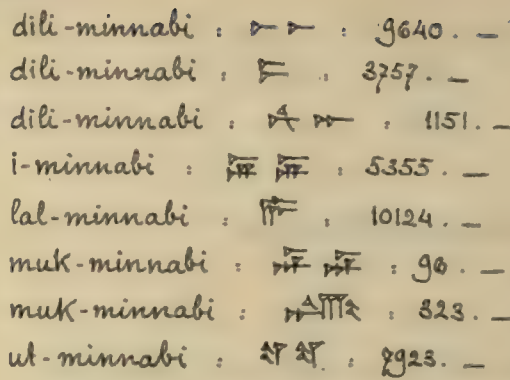 dili-minnabi : 𒀸 𒀸 : 9640. —
dili-minnabi : : 3757. —
dili-minnabi : : 1151. —
i-minnabi : 𒄿 𒄿 : 5355. —
lal-minnabi : : 10124. —
muk-minnabi : 𒈮 𒈮 : 96. —
muk-minnabi : : 323. —
ut-minnabi : : 7923. —